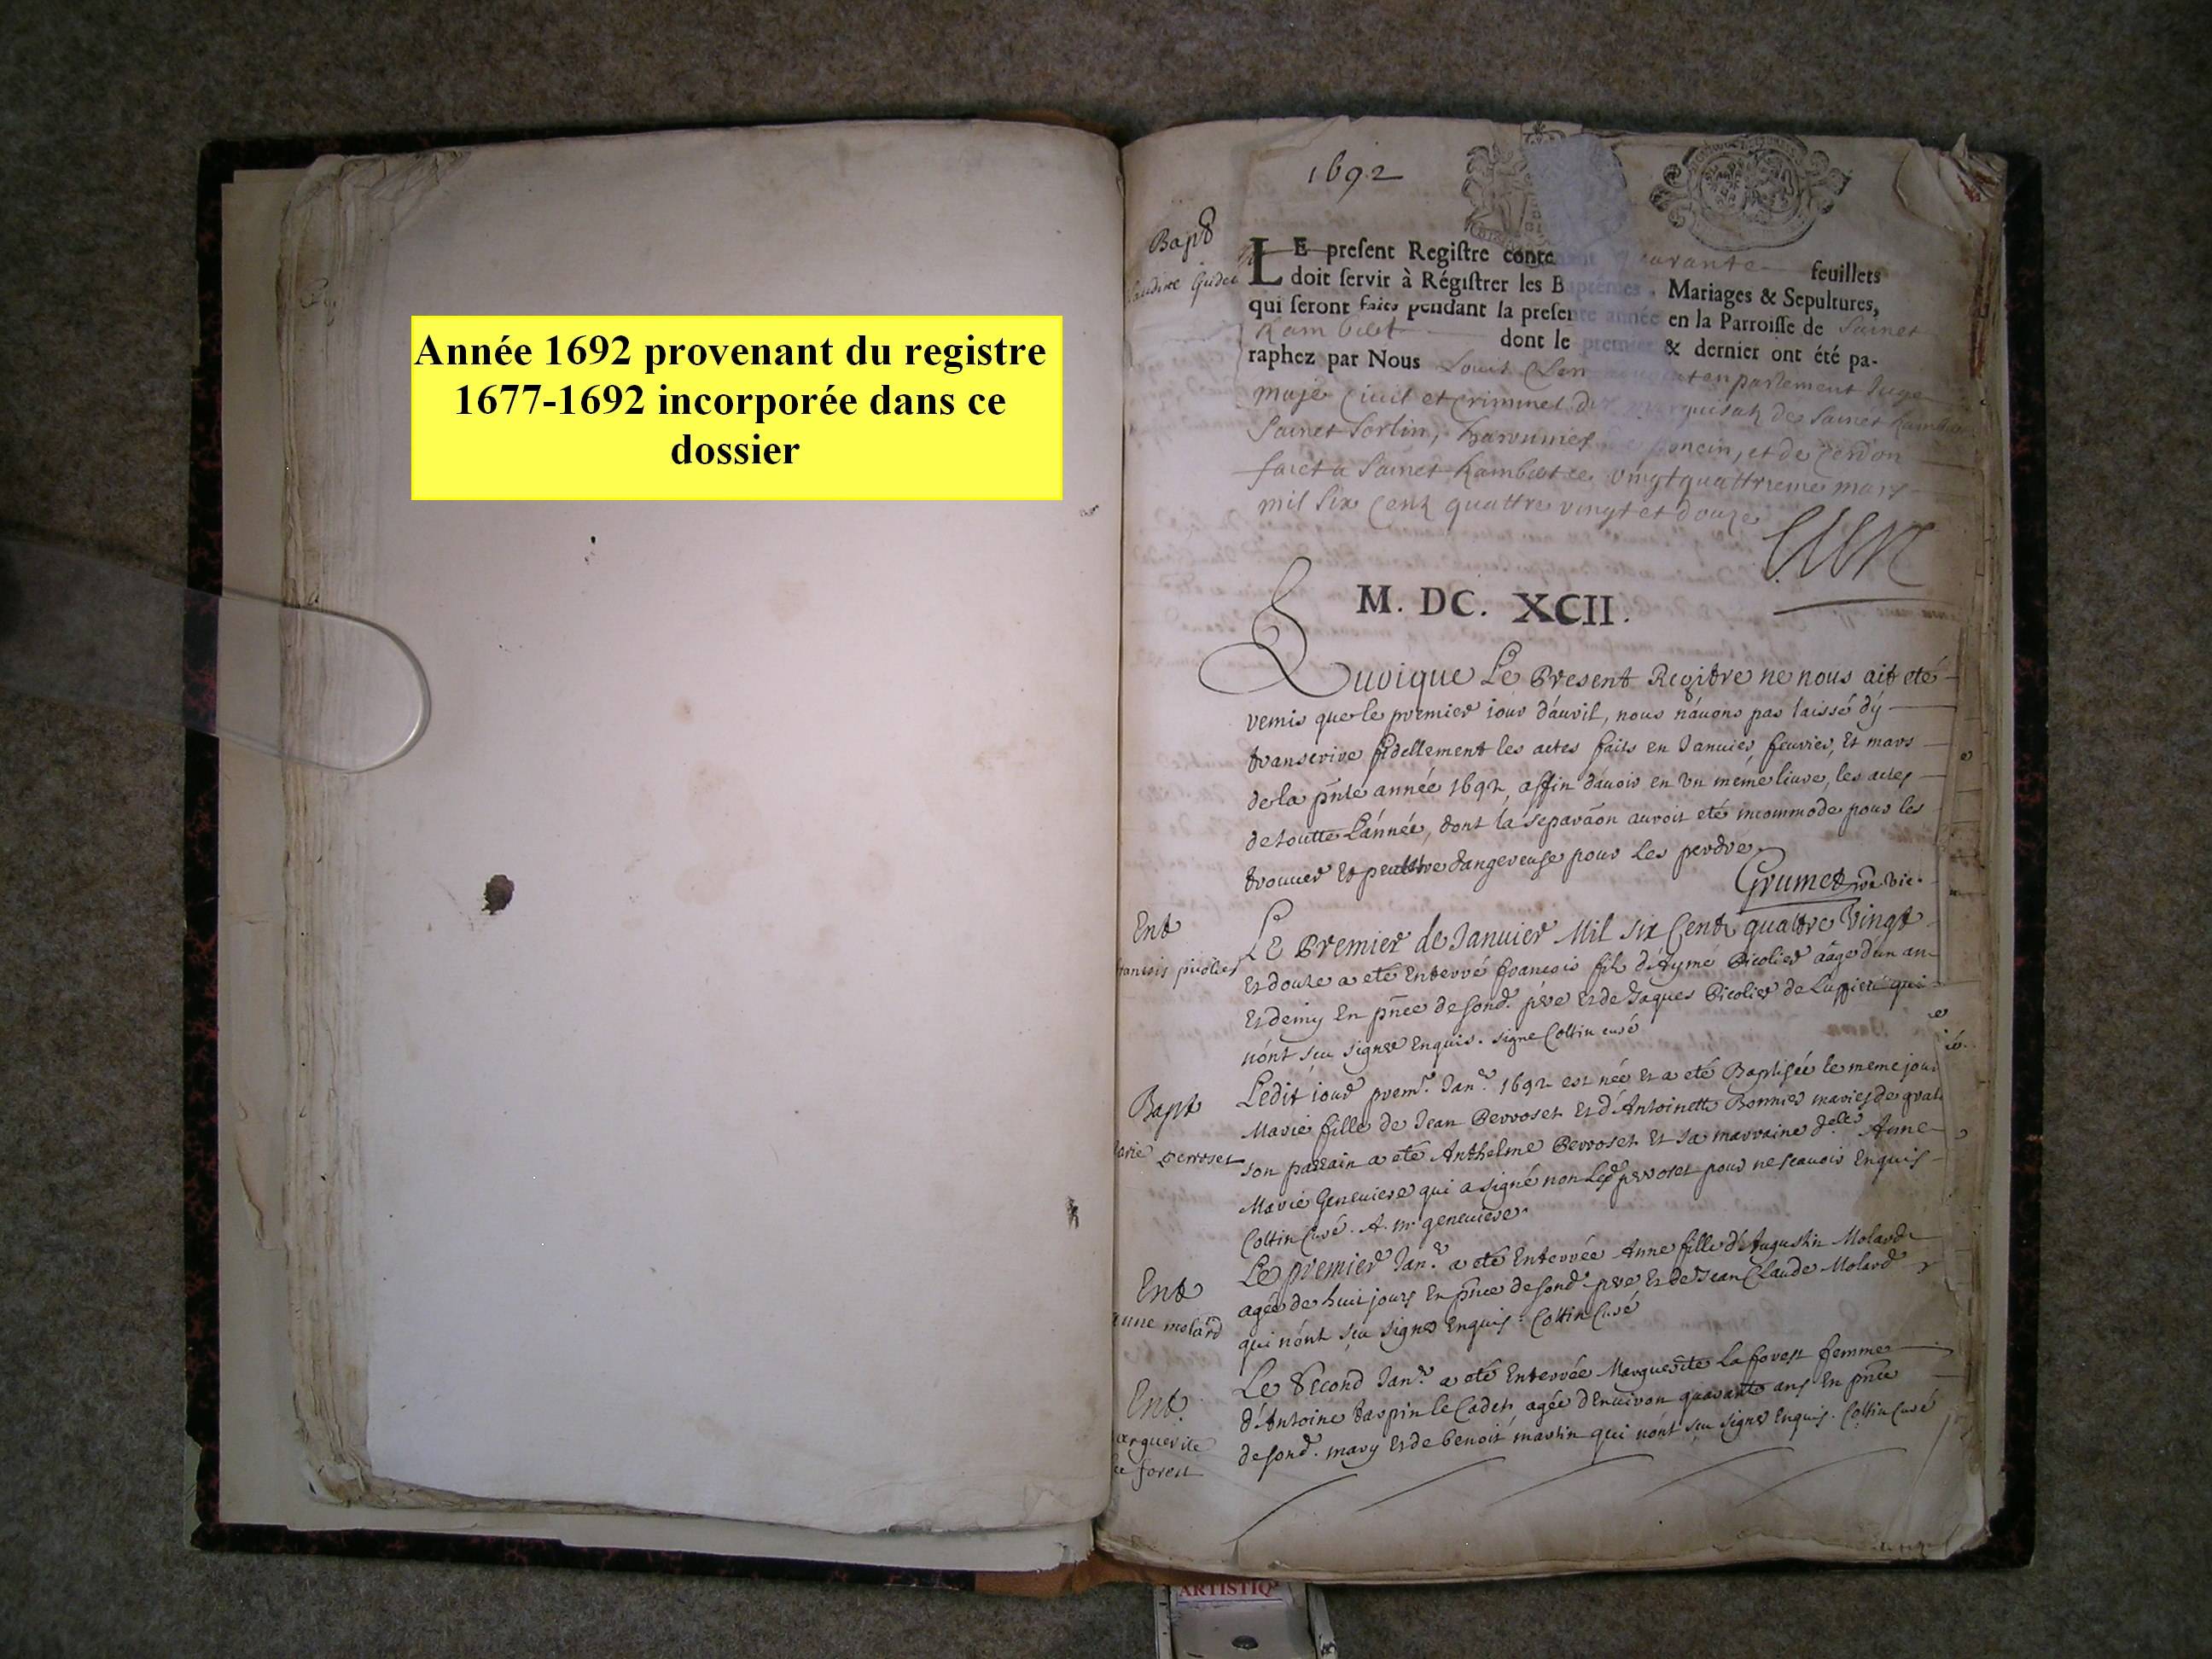 Année 1692 provenant du registre
1677-1692 incorporée dans ce
dossier
1692
Bapt
LE present Registre conte quarante feuillets
doit servir à Régistrer les Baptêmes, Mariages & Sepultures,
qui seront faits pendant la presente année en la Parroisse de Sainct
Rambert dont le premier & dernier ont été pa-
raphez par Nous Louis en parlement Juge
maje Civil et Criminel du marquisat de Sainct Ramber
Sainct Sorlin, baronnies poncin, et de Cerdon
faict a Sainct Rambert ce vingtquattrieme mars
mil Six Cent quattre vingt et douze
M. DC. XCII.
Quoique Le Present Regitre ne nous ait eté
remis que le premier iour d'auril, nous n'auons pas laissé d'y
transcrire fidellement les actes faits en Januier feurier, Et mars
de la pnte année 1692, affin d'auoir en un méme liure, les actes
de toutte L'année, dont la separaon auroit eté incommode pour les
trouuer Et peutetre dangereuse pour les perdre.
Grumet vic.
Ent
francois picolier
LE Premier de Januier Mil six Cent quattre Vingt
Et douze a eté Enterré francois fils d'Aymé Picolier aâgé d'un an
Et demy En pnce de sond. pere Et de Jaques Picolier de Luppieu qui
n'ont sçu signer Enquis. signe Cottin curé
Bapt
marie perroset
Ledit iour premr. Janr. 1692 est née Et a eté Baptisée le meme jour
Marie fille de Jean Perroset Et d'Antoinette Bonnier mariés de
son parrain a eté Anthelme Perroset Et sa marraine delle Anne
Marie Geneuiere qui a signé non Led perroset pour ne scauoir Enquis
Cottin Curé. A. m geneuiere.
Ent
anne molard
Le premier Janr. a eté Enterrée Anne fille d'Augustin Molard
agée de huit jours En pnce de sond pere Et de Jean Claude Molard
qui n'ont sçu signer Enquis. Cottin Curé
Ent.
marguerite
la forest
Le Second Janr. a eté Enterrée Marguerite La forest femme
d'Antoine Le Cadet, agée d'Enuiron quarante ans En pnce
de sond. mary Et de benoit martin qui n'ont sçu signer Enquis. Cottin Curé
ARTISTIQ